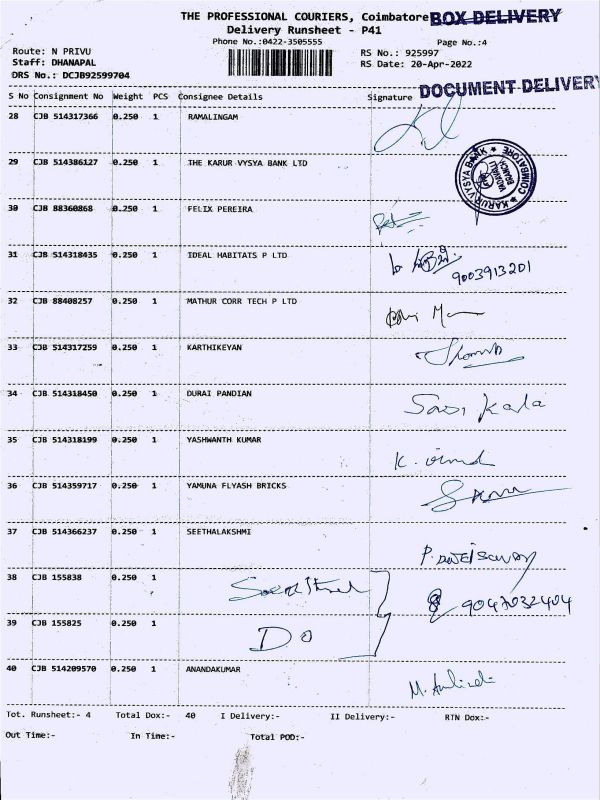 THE PROFESSIONAL COURIERS, Coimbatore BOX DELIVERY
Delivery Runsheet - P41
Phone No.:0422-3505555 Page No.:4
Route: N PRIVU RS No.: 925997
Staff: DHANAPAL RS Date: 20-Apr-2022
DRS No.: DCJB92599704
DOCUMENT DELIVERY
S No Consignment No Weight PCS Consignee Details Signature
28 CJB 514317366 0.250 1 RAMALINGAM
29 CJB 514386127 0.250 1 THE KARUR VYSYA BANK LTD
KARUR VYSYA BANK COIMBATORE
VADAVALLI
BRANCH
30 CJB 88360868 0.250 1 FELIX PEREIRA
31 CJB 514318435 0.250 1 IDEAL HABITATS P LTD
9003913201
32 CJB 88408257 0.250 1 MATHUR CORR TECH P LTD
33 CJB 514317259 0.250 1 KARTHIKEYAN
34 CJB 514318450 0.250 1 DURAI PANDIAN
Sasi Kala
35 CJB 514318199 0.250 1 YASHWANTH KUMAR
K. vinod
36 CJB 514359717 0.250 1 YAMUNA FLYASH BRICKS
37 CJB 514366237 0.250 1 SEETHALAKSHMI
38 CJB 155838 0.250 1
9047032404
39 CJB 155825 0.250 1
DO
40 CJB 514209570 0.250 1 ANANDAKUMAR
Tot. Runsheet:- 4 Total Dox:- 40 I Delivery:- II Delivery:- RTN Dox:-
Out Time:- In Time:- Total POD:-